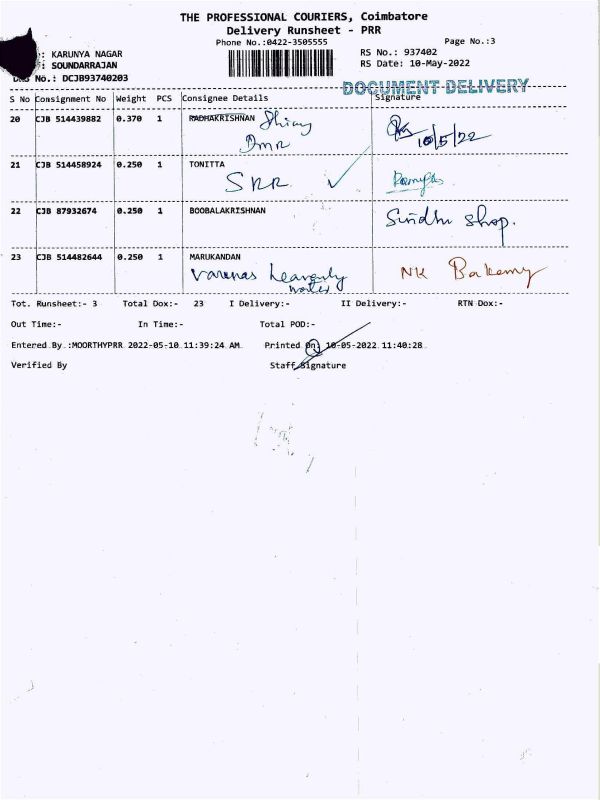 THE PROFESSIONAL COURIERS, Coimbatore
Delivery Runsheet - PRR
Phone No.:0422-3505555
Page No.:3
: KARUNYA NAGAR
RS No.: 937402
: SOUNDARRAJAN
RS Date: 10-May-2022
No.: DCJB93740203
DOCUMENT DELIVERY
S No Consignment No Weight PCS Consignee Details Signature
20 CJB 514439882 0.370 1 RADHAKRISHNAN
10/5/22
21 CJB 514458924 0.250 1 TONITTA
SRR
22 CJB 87932674 0.250 1 BOOBALAKRISHNAN
Sindhu shop.
23 CJB 514482644 0.250 1 MARUKANDAN
heavenly NK Bakery
water
Tot. Runsheet:- 3 Total Dox:- 23 I Delivery:- II Delivery:- RTN Dox:-
Out Time:- In Time:- Total POD:-
Entered By :MOORTHYPRR 2022-05-10 11:39:24 AM Printed On: 10-05-2022 11:40:28
Verified By Staff Signature